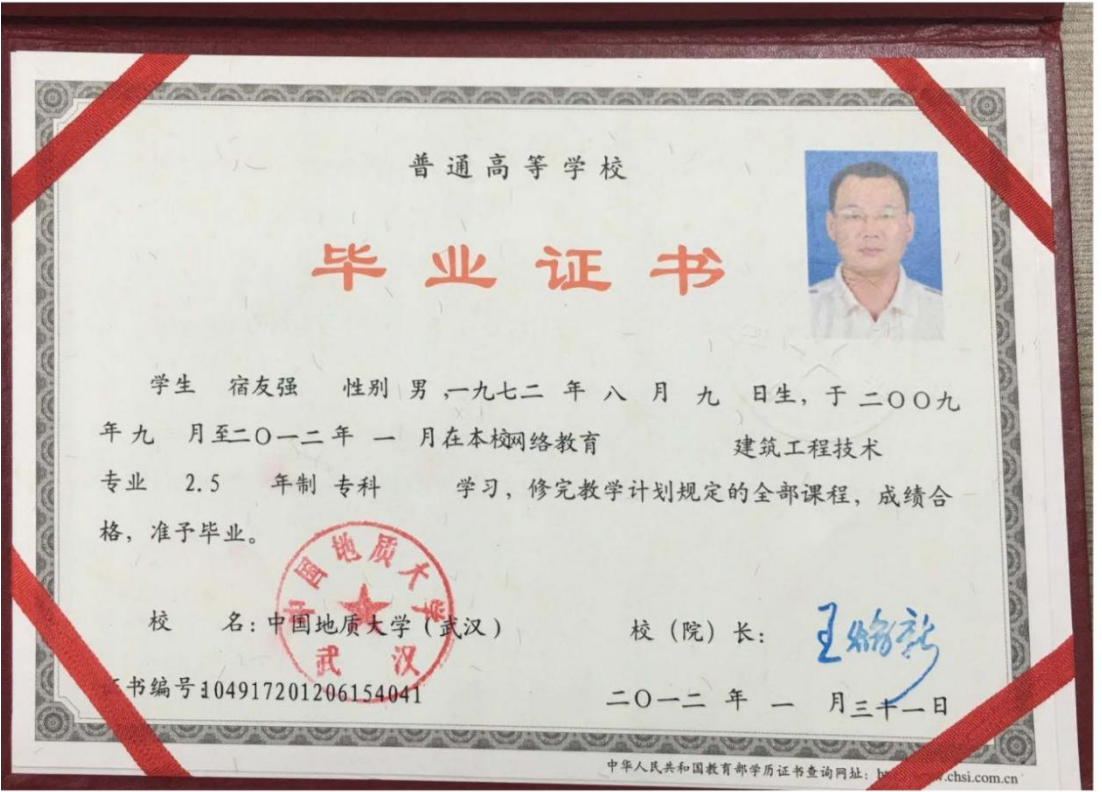 普通高等学校
毕业证书
学生 宿友强 性别 男 ,一九七二 年 八 月 九 日生，于 二〇〇九
年 九 月至二〇一二年 一 月在本校网络教育 建筑工程技术
专业 2.5 年制 专科 学习，修完教学计划规定的全部课程，成绩合
格，准予毕业。
中国地质大学
武汉
校 名：中国地质大学（武汉）
校（院）长：
证书编号:104917201206154041
二〇一二 年 一 月三十一日
中华人民共和国教育部学历证书查询网址： .chsi.com.cn